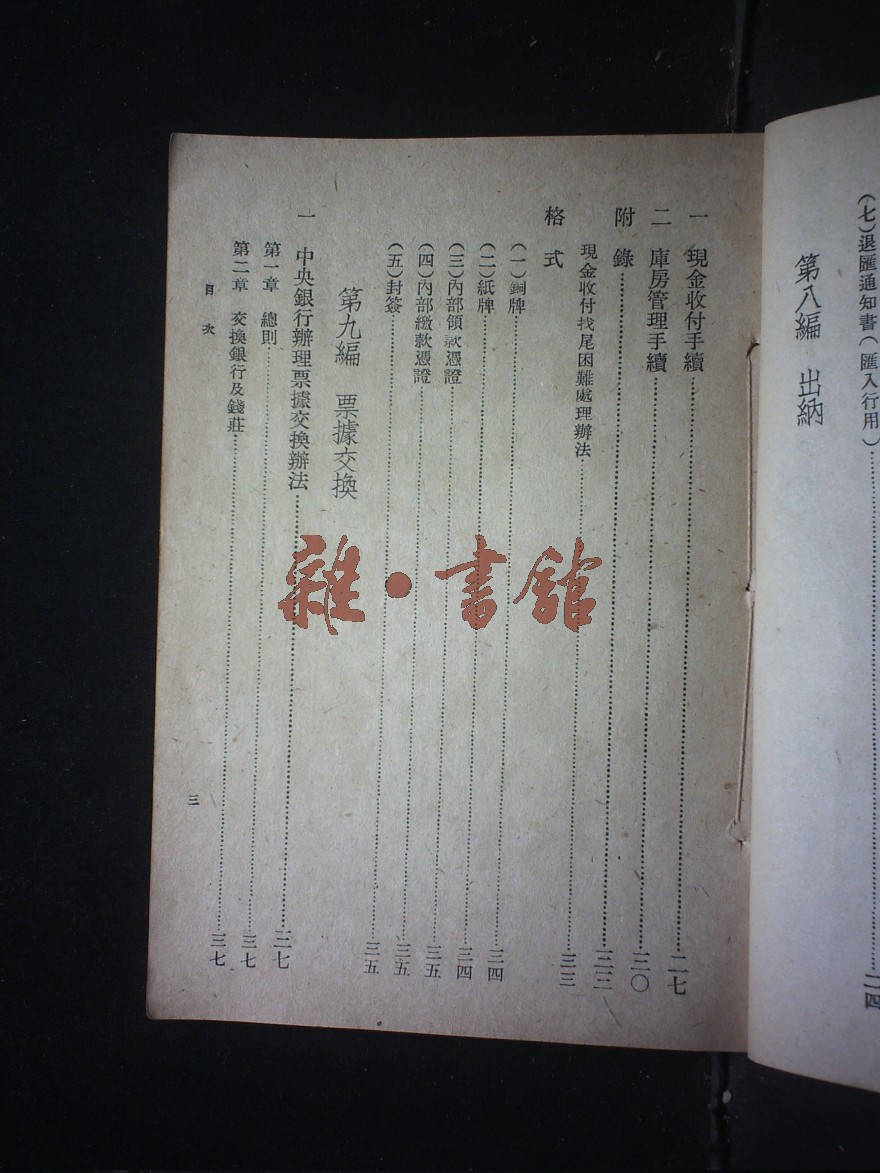 (七)退匯通知書(匯入行用)……二四
第八編 出納
一 現金收付手續……二七
二 庫房管理手續……三〇
附 錄……三三
現金收付找尾困難處理辦法……三三
格 式
(一)銅牌……三四
(二)紙牌……三四
(三)內部領款憑證……三五
(四)內部繳款憑證……三五
(五)封簽……三五
第九編 票據交換
一 中央銀行辦理票據交換辦法……三七
第一章 總則……三七
第二章 交換銀行及錢莊……三七
目 次
三
雜·書館